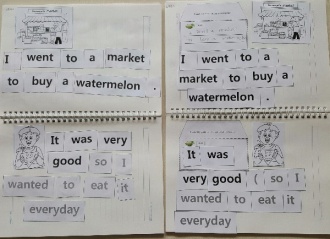 I went to a market
to buy a watermelon .
I went to a
market to buy a
watermelon .
It was very
good so I
wanted to eat it
everyday
It was
very good ( so I
wanted to eat it
everyday